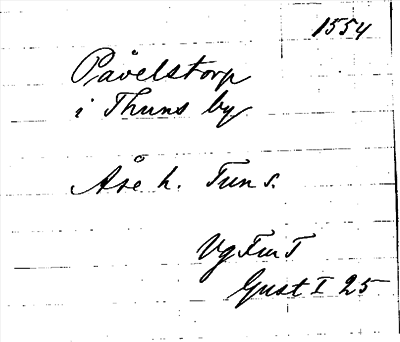 1554
Påvelstorp
i Thuns by
Åse h. Tun s.
Vg FmT
Gust I 25